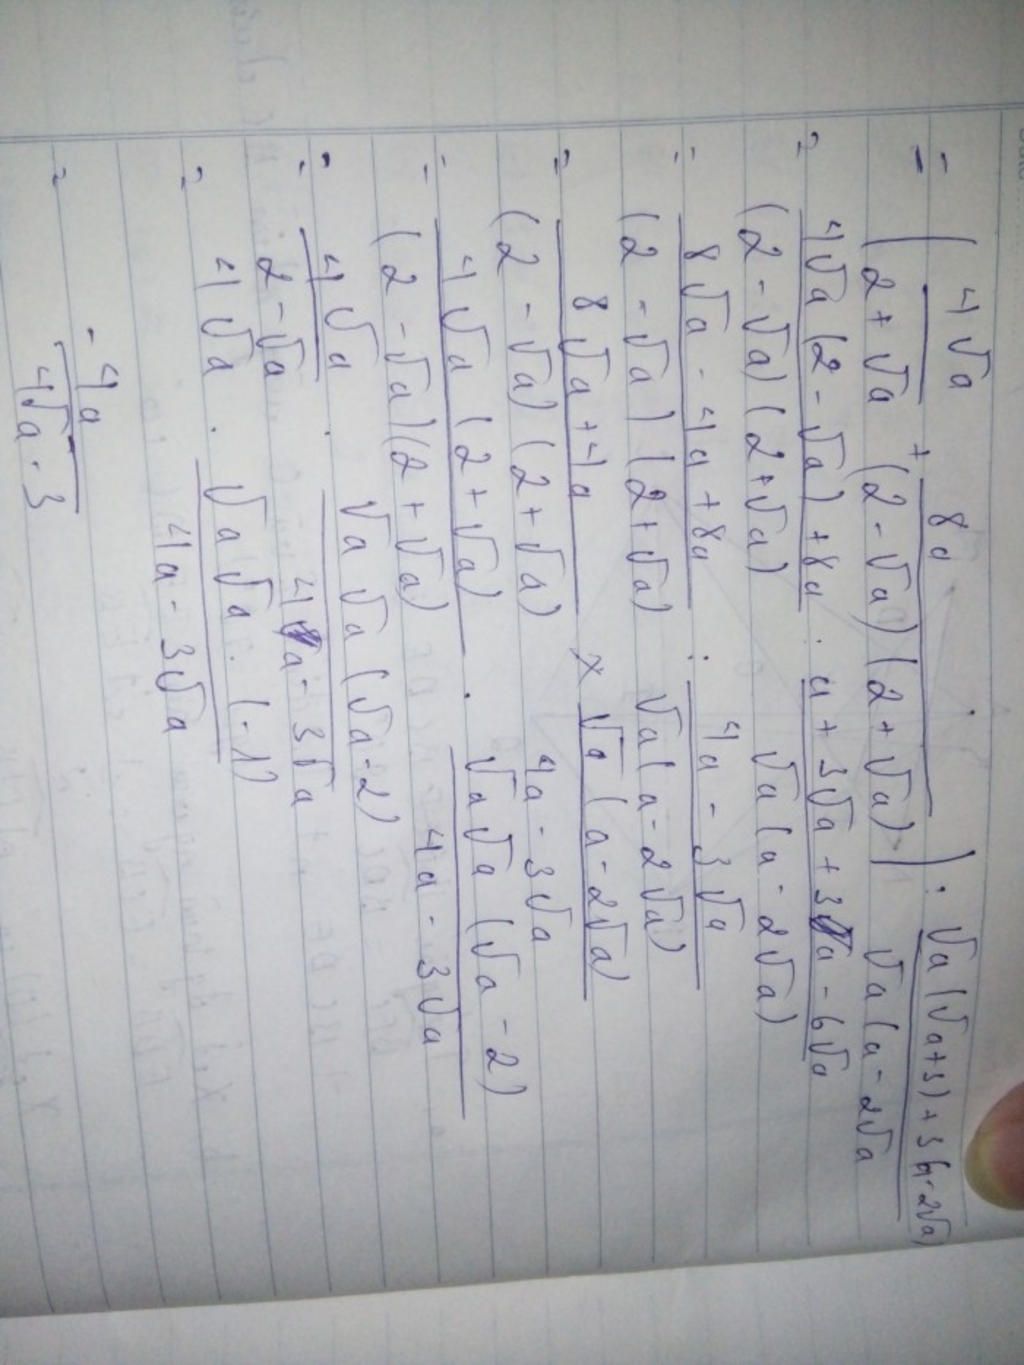 = ( 4√a / 2+√a + 8a / (2-√a)(2+√a) ) : √a(√a+3)+3(a-2√a) / √a(a-2√a
= 4√a(2-√a)+8a / (2-√a)(2+√a) : a+3√a+3a-6√a / √a(a-2√a)
= 8√a-4a+8a / (2-√a)(2+√a) : 4a-3√a / √a(a-2√a)
= 8√a+4a / (2-√a)(2+√a) × √a(a-2√a) / 4a-3√a
= 4√a(2+√a) / (2-√a)(2+√a) . √a√a(√a-2) / 4a-3√a
= 4√a / 2-√a . √a√a(√a-2) / 4a-3√a
= 4√a . √a√a.(-1) / 4a-3√a
= -4a / 4√a-3